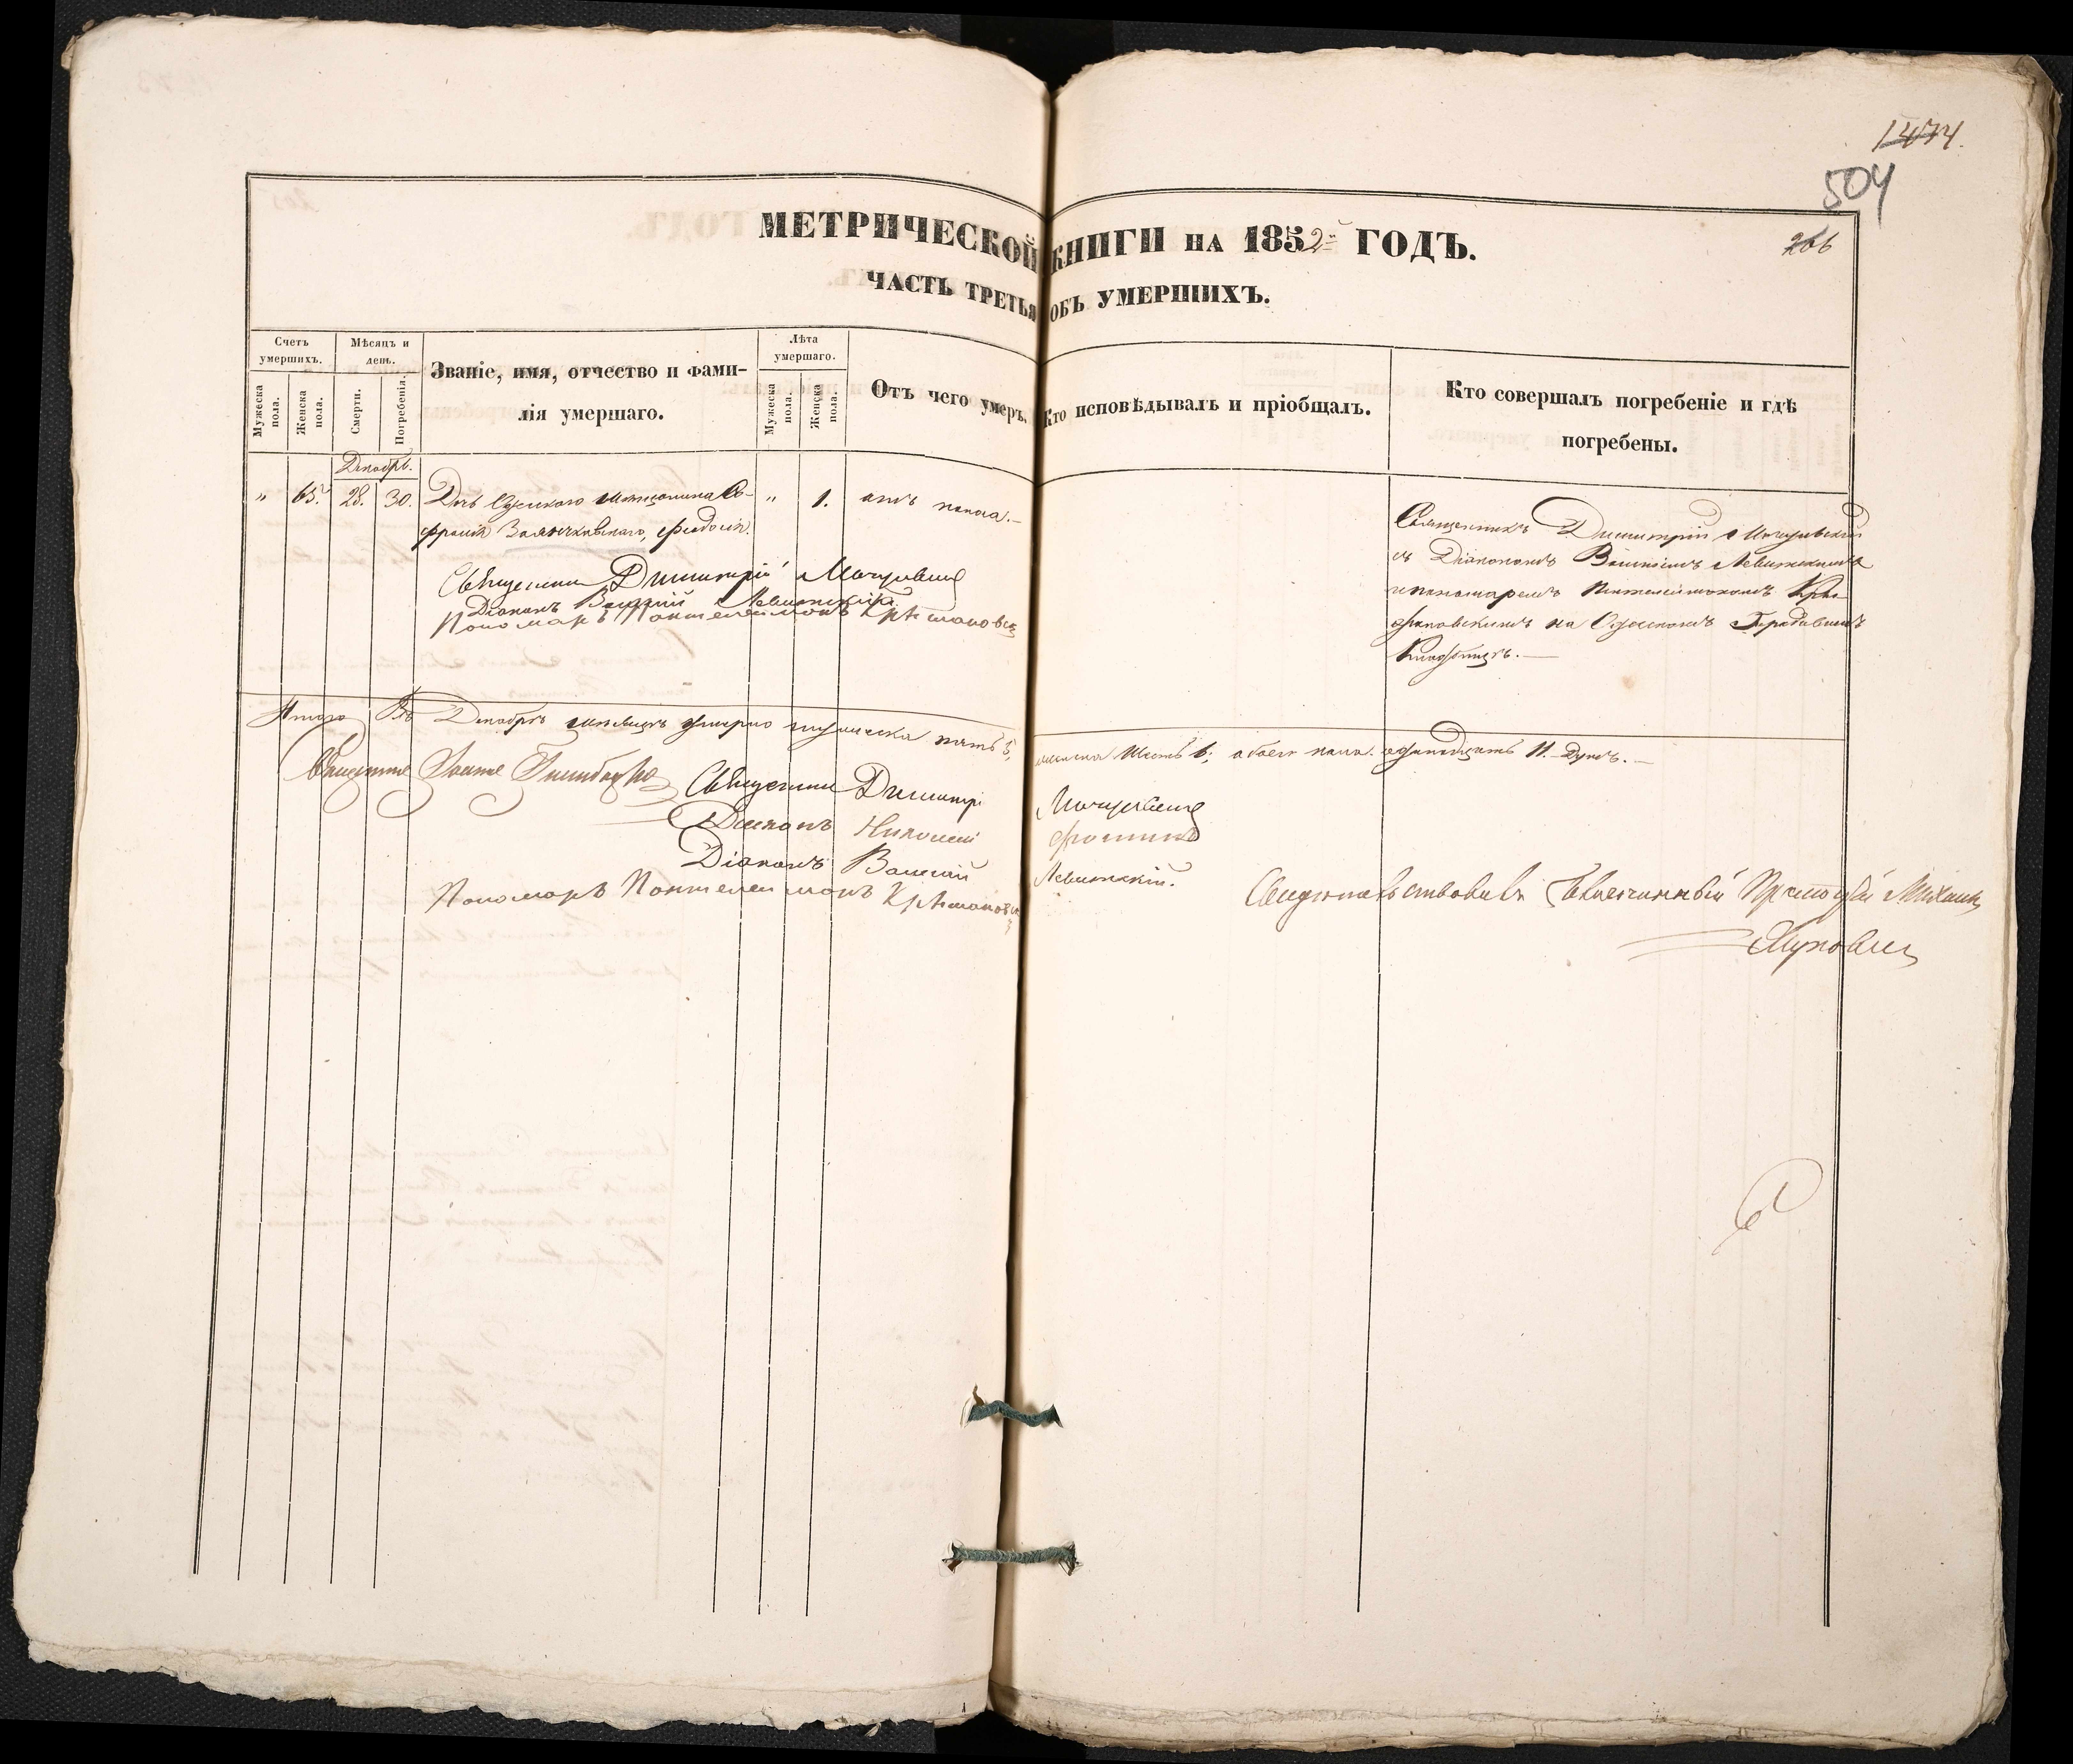 1474.
504
266
МЕТРИЧЕСКОЙ КНИГИ НА 1852й ГОДЪ.
ЧАСТЬ ТРЕТЬЯ ОБЪ УМЕРШИХЪ.
Счетъ умершихъ.
Мужеска пола.
Женска пола.
Мѣсяцъ и день.
Смерти.
Погребенія.
Званіе, имя, отчество и фами-
лія умершаго.
Лѣта умершаго.
Мужеска пола.
Женска пола.
Отъ чего умеръ.
Кто исповѣдывалъ и пріобщалъ.
Кто совершалъ погребеніе и гдѣ
погребены.
Декабрь.
" 65. 28. 30. Дочь Одесскаго мѣщанина
Феодосія.
" 1.
Священникъ Димитрій Мочульскій
съ Діакономъ Василіемъ Левитскимъ
и пономаремъ Пантелеймономъ
на Одесскомъ Городскомъ
Кладбищѣ.
Священникъ Димитрій Мочульскій
Діаконъ Василій Левитскій
Пономарь Пантелеймонъ
Итого Въ Декабрѣ мѣсяцѣ умерло мужеска пять 5, женска шесть 6; обоего пола одинадцать 11. душъ.
Священникъ Іоаннъ
Священникъ Димитрій Мочульскій
Діаконъ Николай
Діаконъ Василій Левитскій.
Пономарь Пантелеймонъ
Свидѣтельствовалъ Благочинный Протоіерей Михаилъ